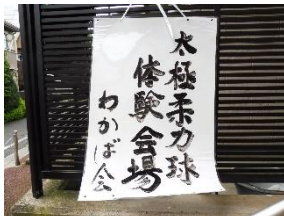 太極柔力球
体験会場
わかば会